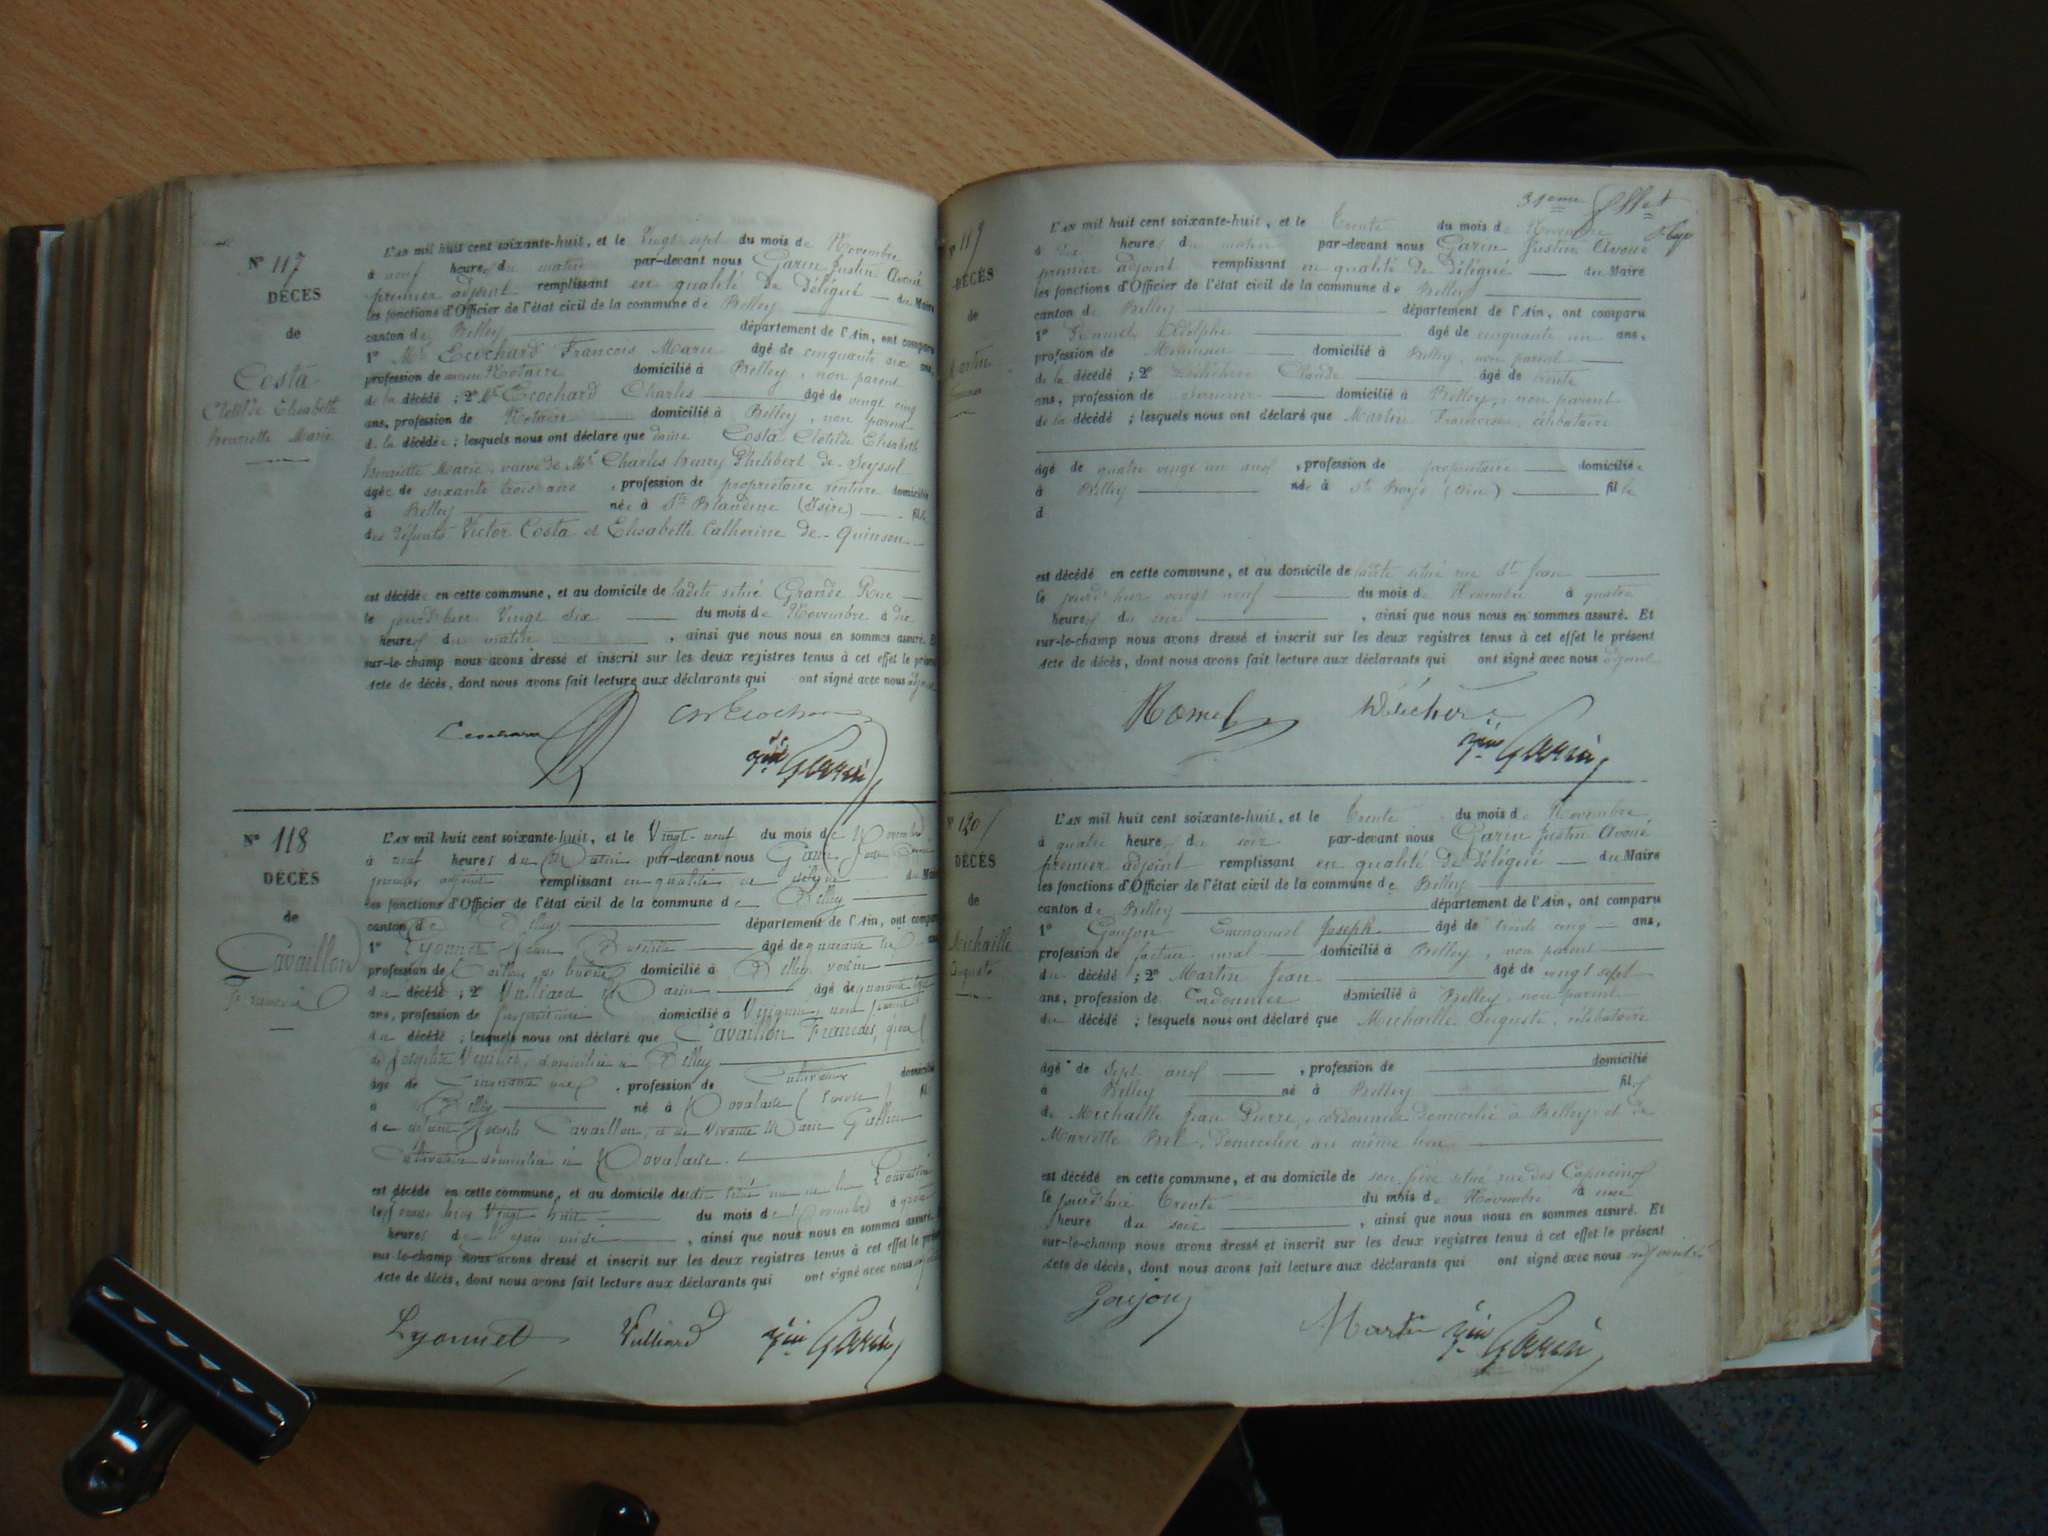 Nº 117
DÉCÈS
de
Costa
Clotilde Elisabeth
henriette Marie
L'AN mil huit cent soixante-huit, et le Vingt sept du mois de Novembre
à neuf heures du matin par-devant nous Garin Justin Avoué
premier adjoint remplissant en qualité de Délégué du Maire
les fonctions d'Officier de l'état civil de la commune de Belley
canton de Belley département de l'Ain, ont comparu
1º Mr Ecochard François Marie âgé de cinquante six ans,
profession de ancien Notaire domicilié à Belley, non parent
de la décédé ; 2º Mr Ecochard Charles âgé de vingt cinq
ans, profession de Notaire domicilié à Belley, non parent
de la décédée ; lesquels nous ont déclaré que dame Costa Clotilde Elisabeth
henriette Marie, veuve de Mr Charles henry Philibert de Seyssel
âgée de soixante trois ans, profession de propriétaire rentière domiciliée
à Belley née à Ste Blandine (Isère) fille
des défunts Victor Costa et Elisabeth Catherine de Quinson
est décédée en cette commune, et au domicile de ladite situé Grande Rue
le jourd'hier Vingt six du mois de Novembre à dix
heures du matin, ainsi que nous nous en sommes assuré. Et
sur-le-champ nous avons dressé et inscrit sur les deux registres tenus à cet effet le présent
Acte de décès, dont nous avons fait lecture aux déclarants qui ont signé avec nous adjoint
Ecochard Ch Ecochard
Garin
Nº 118
DÉCÈS
de
Cavaillon
Francois
L'AN mil huit cent soixante-huit, et le Vingt-neuf du mois de Novembre
à neuf heures du Matin par-devant nous Garin Justin
premier adjoint remplissant en qualité de délégué du Maire
les fonctions d'Officier de l'état civil de la commune de Belley
canton de Belley département de l'Ain, ont comparu
1º Lyonnet Jean Baptiste âgé de quarante ans
profession de domicilié à Belley, voisin
du décédé ; 2º Vulliard Marin âgé de quarante
ans, profession de propriétaire domicilié à non parent
du décédé ; lesquels nous ont déclaré que Cavaillon Francois,
de Josephte domiciliée à Belley
âgé de profession de domicilié
à Belley né à Novalaise (Savoie) fils
de défunt Cavaillon, et de vivante Marie
domiciliée à Novalaise
est décédé en cette commune, et au domicile dudit situé rue
le jourd'hier Vingt huit du mois de Novembre à
heures de, ainsi que nous nous en sommes assuré. Et
sur-le-champ nous avons dressé et inscrit sur les deux registres tenus à cet effet le présent
Acte de décès, dont nous avons fait lecture aux déclarants qui ont signé avec nous
Lyonnet Vulliard Garin
31eme
Nº 119
DÉCÈS
de
Martin
L'AN mil huit cent soixante-huit, et le Trente du mois de Novembre
à dix heures du matin par-devant nous Garin Justin Avoué
premier adjoint remplissant en qualité de Délégué du Maire
les fonctions d'Officier de l'état civil de la commune de Belley
canton de Belley département de l'Ain, ont comparu
1º Adolphe âgé de cinquante un ans,
profession de Menuisier domicilié à Belley, non parent
de la décédé ; 2º Claude âgé de trente
ans, profession de domicilié à Belley, non parent
de la décédé ; lesquels nous ont déclaré que Martin Francoise, célibataire
âgé de quatre vingt un ans, profession de propriétaire domiciliée
à Belley née à (Ain) fille
d
est décédé en cette commune, et au domicile de ladite situé rue St Jean
le jourd'hier vingt neuf du mois de Novembre à quatre
heures du soir, ainsi que nous nous en sommes assuré. Et
sur-le-champ nous avons dressé et inscrit sur les deux registres tenus à cet effet le présent
Acte de décès, dont nous avons fait lecture aux déclarants qui ont signé avec nous adjoint
Garin
Nº 120
DÉCÈS
de
Michaille
Auguste
L'AN mil huit cent soixante-huit, et le Trente du mois de Novembre,
à quatre heures du soir par-devant nous Garin Justin Avoué
premier adjoint remplissant en qualité de Délégué du Maire
les fonctions d'Officier de l'état civil de la commune de Belley
canton de Belley département de l'Ain, ont comparu
1º Goujon Emmanuel Joseph âgé de trente cinq ans,
profession de facteur rural domicilié à Belley, non parent
du décédé ; 2º Martin Jean âgé de vingt sept
ans, profession de Cordonnier domicilié à Belley, non parent
du décédé ; lesquels nous ont déclaré que Michaille Auguste, célibataire
âgé de sept ans, profession de domicilié
à Belley né à Belley fils
de Michaille Jean Pierre, cordonnier domicilié à Belley et de
Mariette Bel, domiciliée au même lieu
est décédé en cette commune, et au domicile de son père situé rue des Capucins
le jourd'hui Trente du mois de Novembre à une
heure du soir, ainsi que nous nous en sommes assuré. Et
sur-le-champ nous avons dressé et inscrit sur les deux registres tenus à cet effet le présent
Acte de décès, dont nous avons fait lecture aux déclarants qui ont signé avec nous
Goujon
Martin Garin